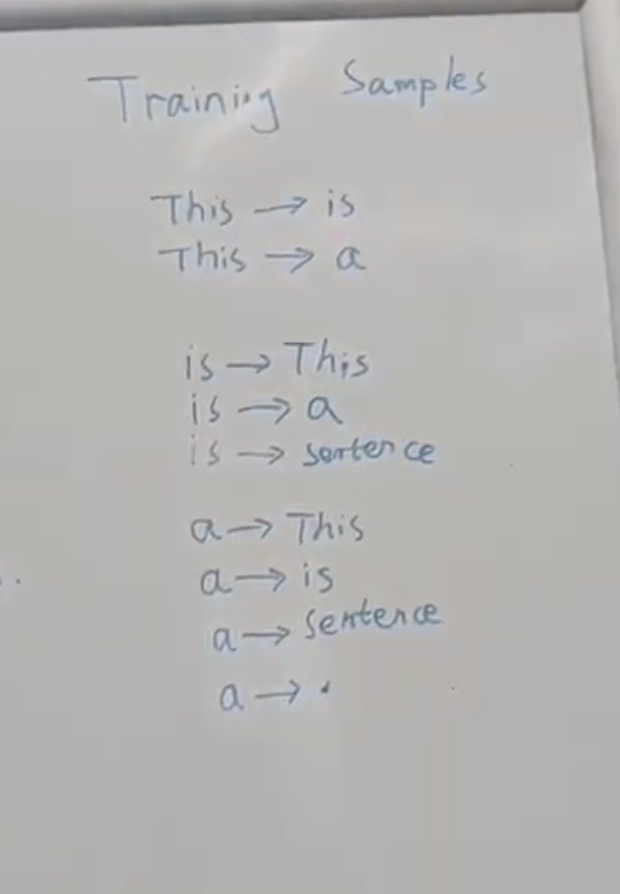 Training Samples
This → is
This → a
is → This
is → a
is → sentence
a → This
a → is
a → sentence
a → .